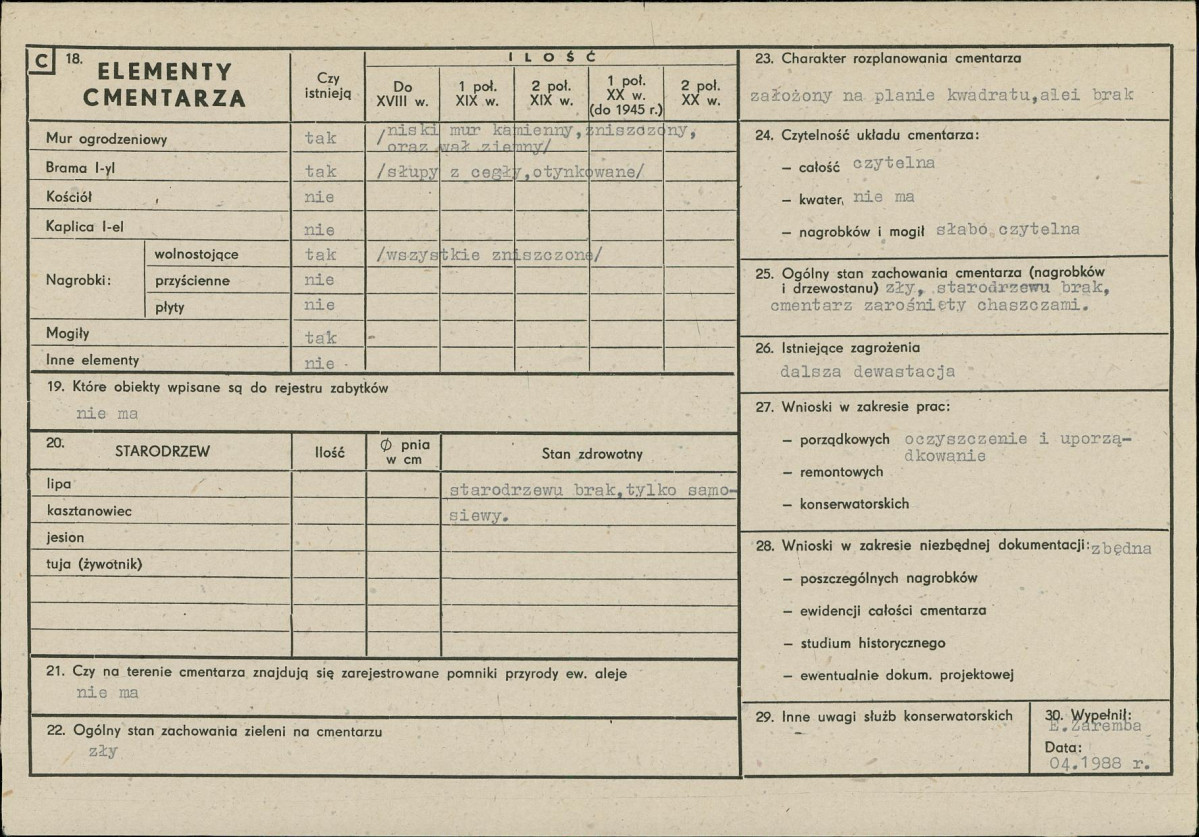 C 18. ELEMENTY CMENTARZA
Czy istnieją
ILOŚĆ
Do XVIII w.
1 poł. XIX w.
2 poł. XIX w.
1 poł. XX w. (do 1945 r.)
2 poł. XX w.
Mur ogrodzeniowy tak /niski mur kamienny,zniszczony,
oraz wał ziemny/
Brama I-yl tak /słupy z cegły,otynkowane/
Kościół nie
Kaplica I-el nie
Nagrobki:
wolnostojące tak /wszystkie zniszczone/
przyścienne nie
płyty nie
Mogiły tak
Inne elementy nie
19. Które obiekty wpisane są do rejestru zabytków
nie ma
20. STARODRZEW Ilość Ø pnia w cm Stan zdrowotny
lipa starodrzewu brak,tylko samo-
kasztanowiec siewy.
jesion
tuja (żywotnik)
21. Czy na terenie cmentarza znajdują się zarejestrowane pomniki przyrody ew. aleje
nie ma
22. Ogólny stan zachowania zieleni na cmentarzu
zły
23. Charakter rozplanowania cmentarza
założony na planie kwadratu,alei brak
24. Czytelność układu cmentarza:
– całość czytelna
– kwater, nie ma
– nagrobków i mogił słabo czytelna
25. Ogólny stan zachowania cmentarza (nagrobków
i drzewostanu) zły, starodrzewu brak,
cmentarz zarośnięty chaszczami.
26. Istniejące zagrożenia
dalsza dewastacja
27. Wnioski w zakresie prac:
– porządkowych oczyszczenie i uporzą-
dkowanie
– remontowych
– konserwatorskich
28. Wnioski w zakresie niezbędnej dokumentacji: zbędna
– poszczególnych nagrobków
– ewidencji całości cmentarza
– studium historycznego
– ewentualnie dokum. projektowej
29. Inne uwagi służb konserwatorskich
30. Wypełnił:
E.Zaremba
Data:
04.1988 r.